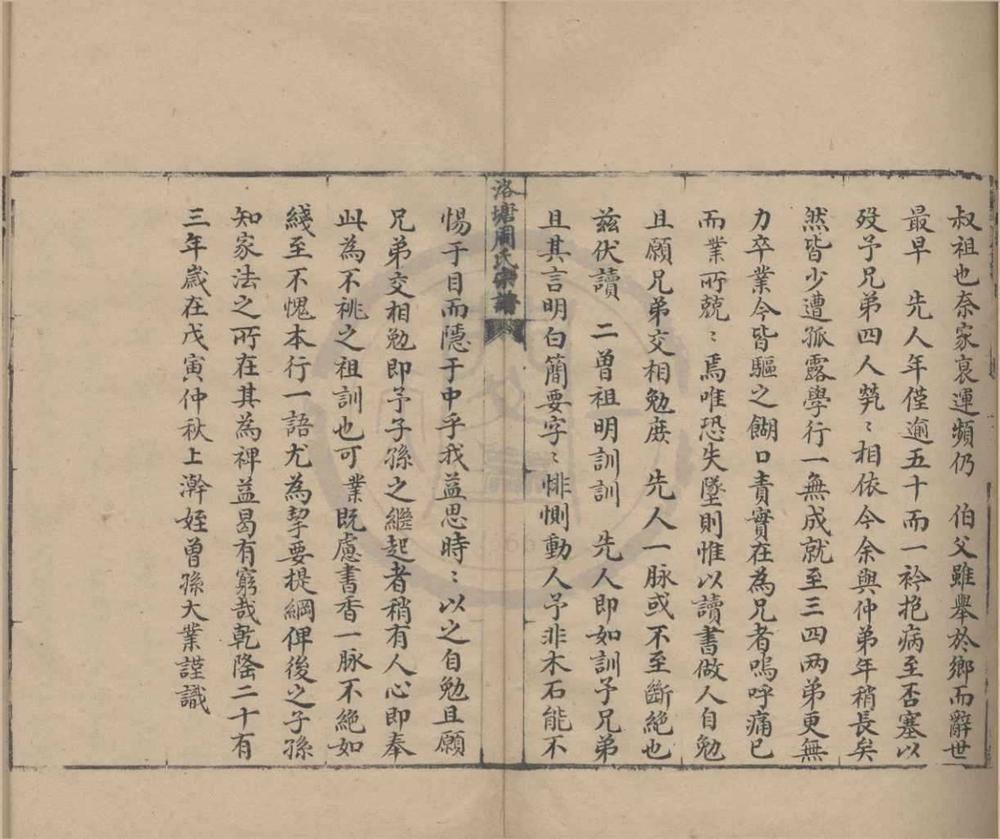 叔祖也奈家衰運頻仍　伯父雖舉於鄉而辭世
最早　先人年僅逾五十而一衿抱病至否塞以
歿予兄弟四人煢〻相依今余與仲弟年稍長矣
然皆少遭孤露學行一無成就至三四两弟更無
力卒業今皆驅之餬口責實在為兄者嗚呼痛已
而業所兢〻焉唯恐失墜則惟以讀書做人自勉
且願兄弟交相勉庶　先人一脈或不至斷絕也
茲伏讀　二曾祖明訓訓　先人即如訓予兄弟
且其言明白簡要字〻悱惻動人予非木石能不
洛塘周氏宗譜
惕于目而隱于中乎我益思時〻以之自勉且願
兄弟交相勉即予子孫之繼起者稍有人心即奉
此為不祧之祖訓也可業既慮書香一脈不絕如
綫至不愧本行一語尤為挈要提綱俾後之子孫
知家法之所在其為裨益曷有窮哉乾隆二十有
三年歲在戊寅仲秋上澣姪曾孫大業謹識